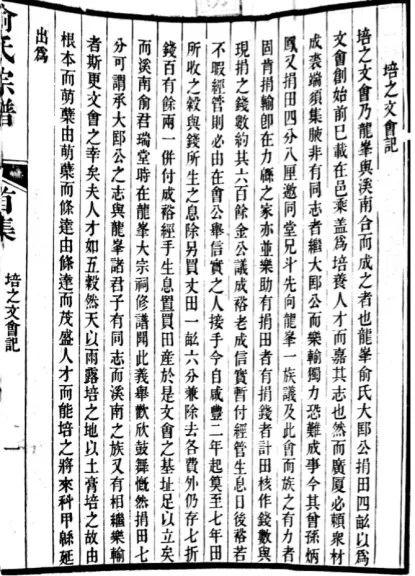 培之文會記
培之文會乃龍峯與溪南合而成之者也龍峯俞氏大郢公捐田四畝以爲
文會創始前已載在邑乘蓋爲培養人才而嘉其志也然而廣厦必頼衆材
成裘端須集腋非有同志者繼大郢公而樂輸獨力恐難成事今其曾孫炳
鳳又捐田四分八厘邀同堂兄斗先向龍峯一族議及此會而族之有力者
固肯捐輸卽在力礙之家亦並樂助有捐田者有捐錢者計田核作錢數與
現捐之錢數約其六百餘金公議成裕老成信實暫付經管生息日後裕若
不暇經管則必由在會公舉信實之人接手今自咸豐二年起莫至七年田
所收之穀與錢所生之息除另買丈田一畝六分兼除去各費外仍存七折
錢百有餘兩一併付成裕經手生息置買田産於是文會之基址足以立矣
而溪南俞君瑞堂時在龍峯大宗祠修譜聞此義舉歡欣鼓舞慨然捐田七
分可謂承大郢公之志與龍峯諸君子有同志而溪南之族又有相繼樂輸
者斯更文會之幸矣夫人才如五穀然天以雨露培之地以土膏培之故由
根本而萌蘖由萌蘖而條達由條達而茂盛人才而能培之將來科甲緜延
出爲
俞氏宗譜
首集
培之文會記
一